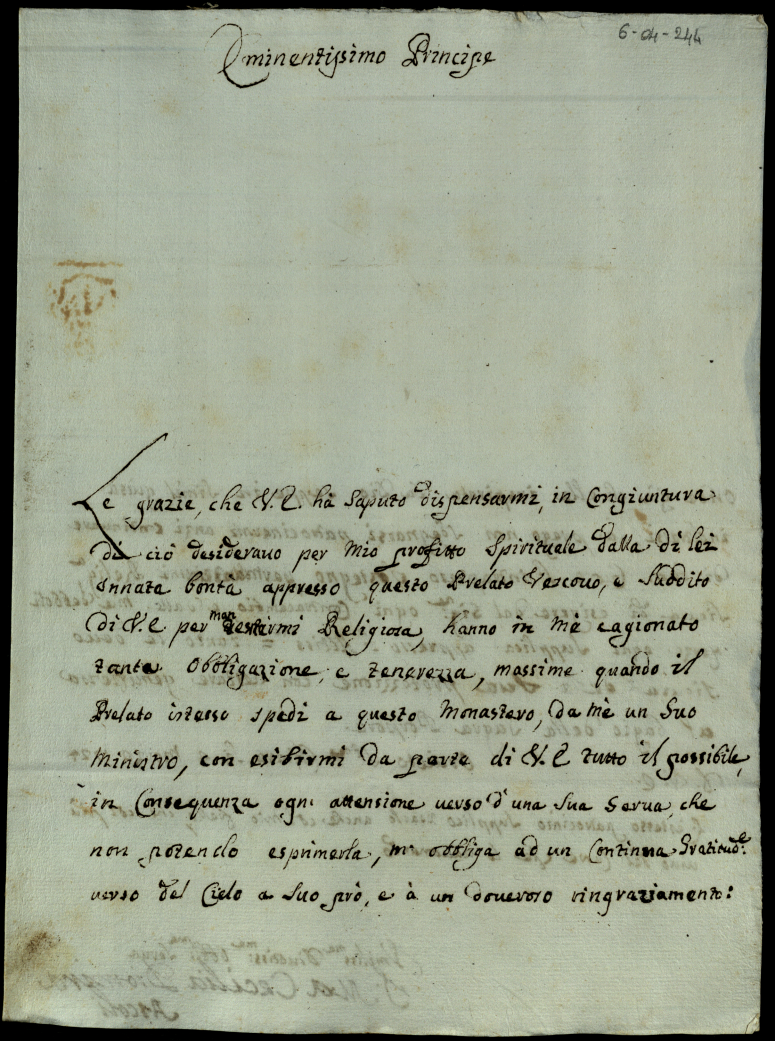 6-04-244
Eminentissimo Principe
Le grazie, che V.E. hà saputo dispensarmi, in Congiuntura
di ciò desideravo per mio profitto Spirituale dalla di lei
innata bontà appresso questo Prelato Vescovo, e Suddito
di V.E. per Religiosa, hanno in mè cagionato
tante Obbligazione, e tenerezza, massime quando il
Prelato istesso spedi a questo Monastero, da mè un Suo
Ministro, con esibirmi da parte di V.E tutto il possibile,
in Consequenza ogni attensione verso d'una Sua Serva, che
non potendo esprimerla, m' obbliga ad un Continua Gratitud.e
verso del Cielo a Suo prò, e à un doveroso ringraziamento: